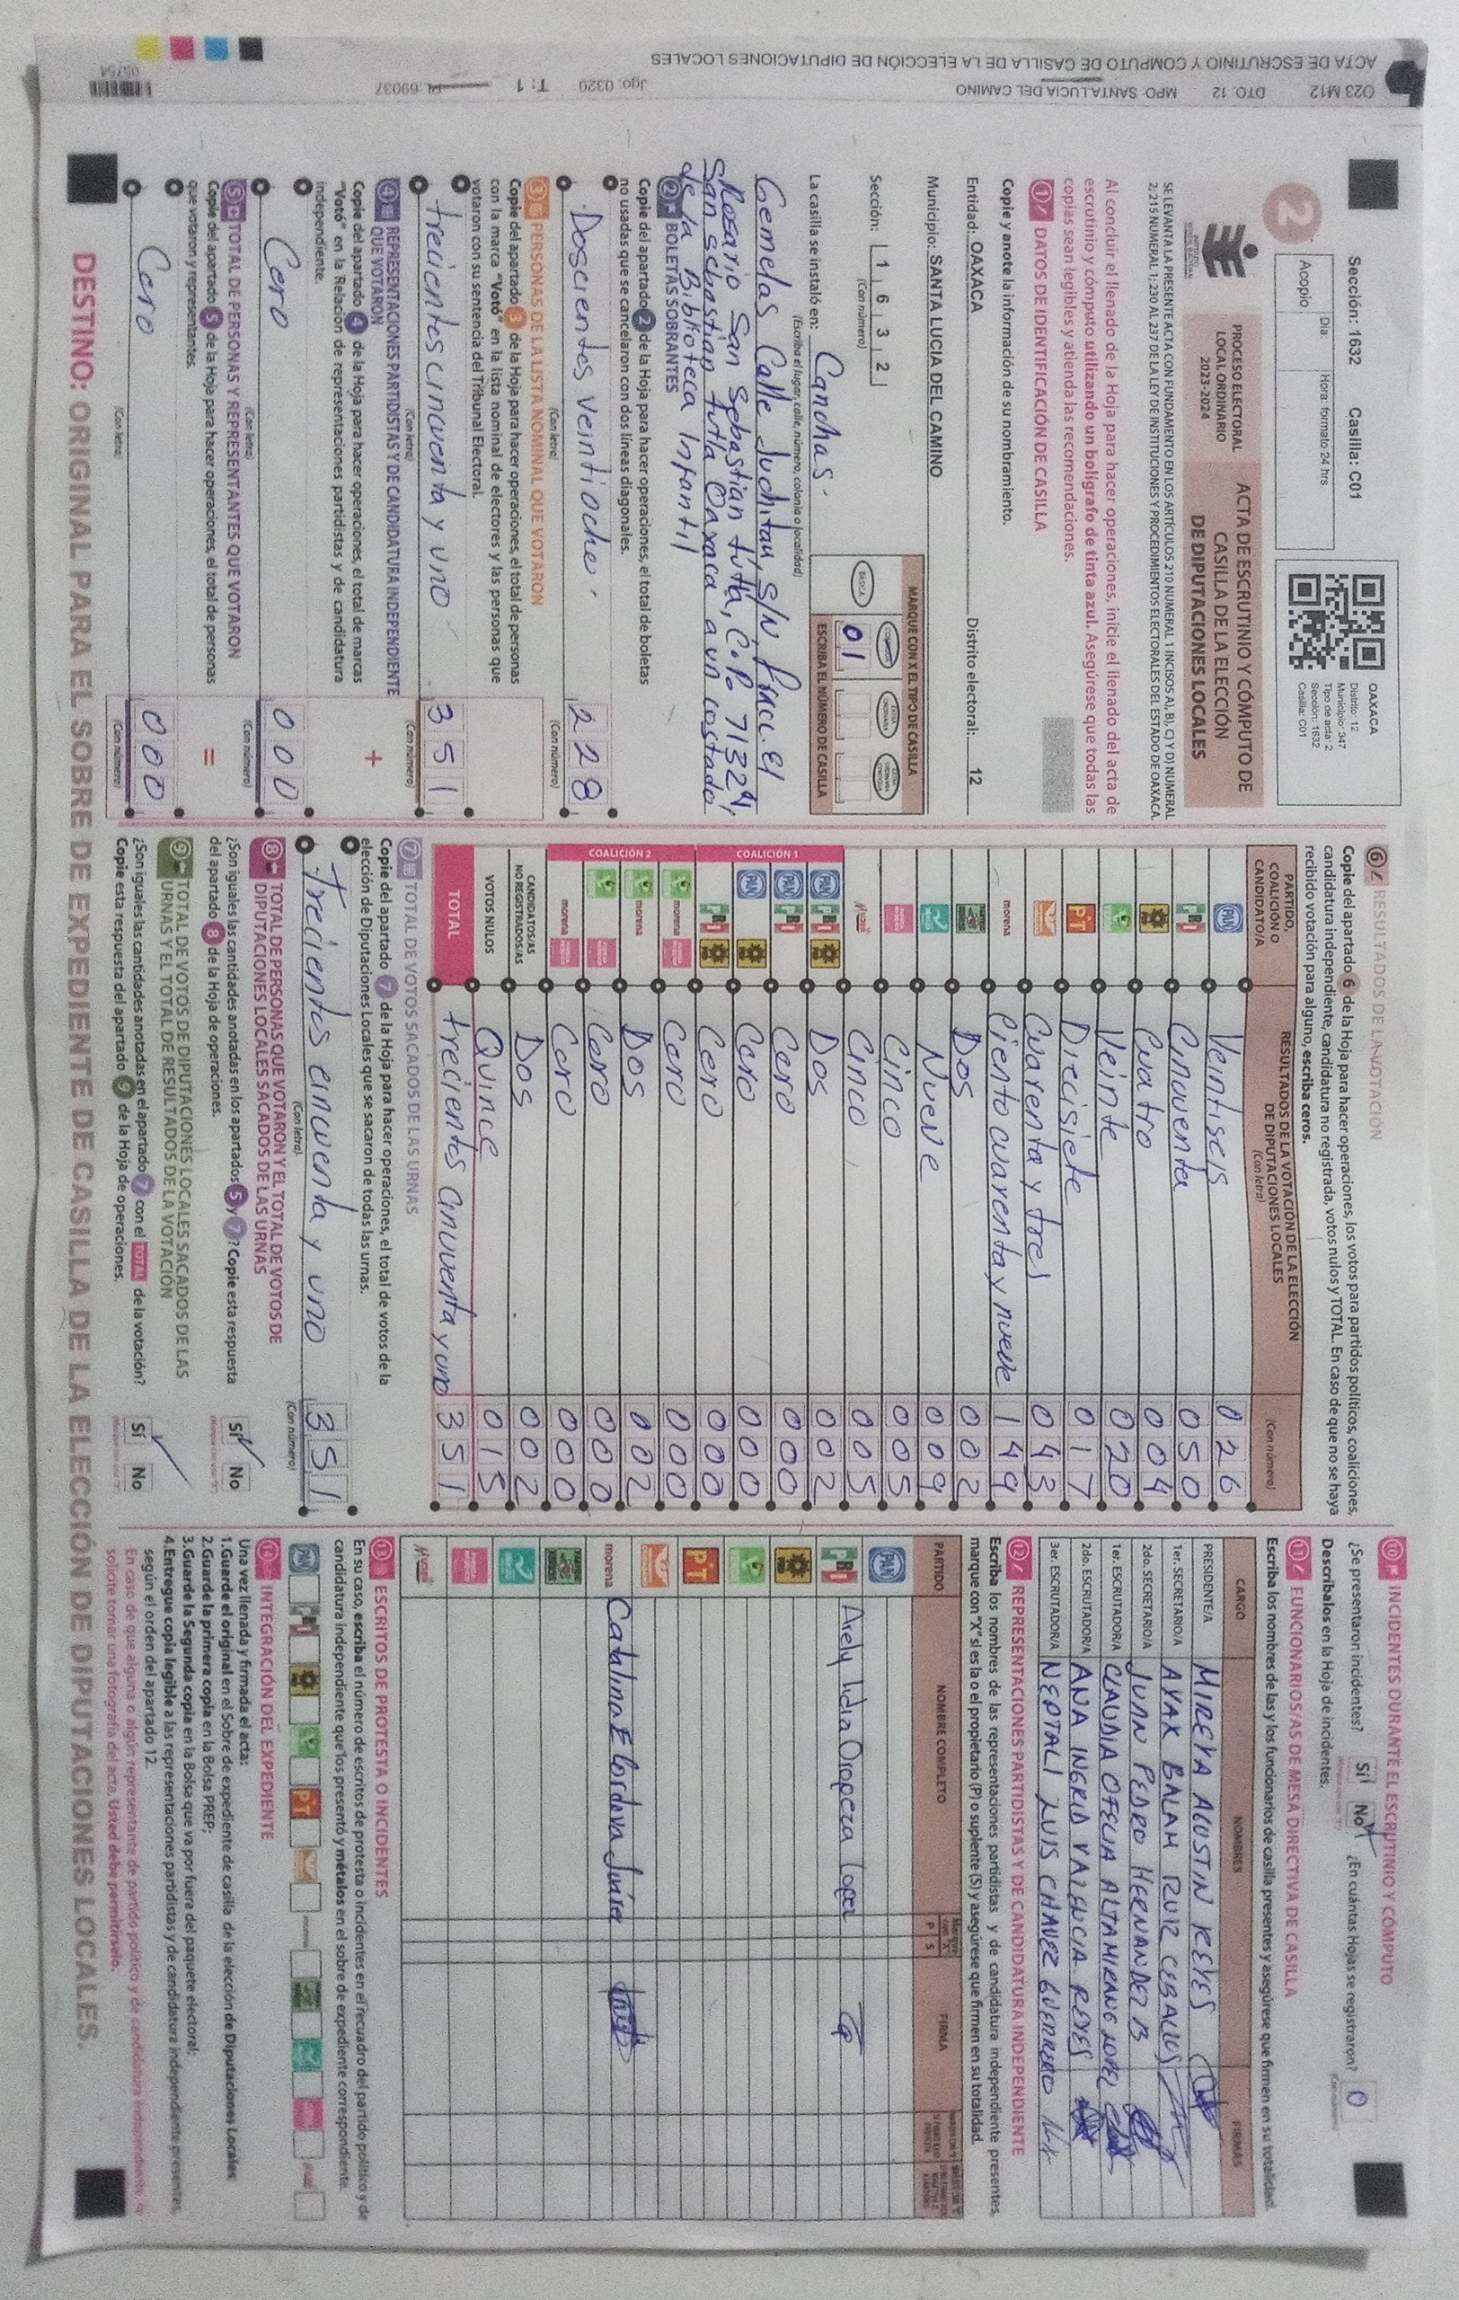 ACTA DE ESCRUTINIO Y CÓMPUTO DE CASILLA DE LA ELECCIÓN DE DIPUTACIONES LOCALES
O23 M12 DTO. 12 MPO. SANTA LUCIA DEL CAMINO Jgo: 0320 T: 1 69037
05754
Sección: 1632 Casilla: C01
Día: Hora: formato 24 hrs
Acopio
OAXACA
Distrito: 12
Municipio: 347
Tipo de acta: 2
Sección: 1632
Casilla: C01
2
PROCESO ELECTORAL
LOCAL ORDINARIO
2023-2024
ACTA DE ESCRUTINIO Y CÓMPUTO DE
CASILLA DE LA ELECCIÓN
DE DIPUTACIONES LOCALES
SE LEVANTA LA PRESENTE ACTA CON FUNDAMENTO EN LOS ARTÍCULOS 210 NUMERAL 1 INCISOS A), B), C) Y D) NUMERAL
2; 215 NUMERAL 1; 230 AL 237 DE LA LEY DE INSTITUCIONES Y PROCEDIMIENTOS ELECTORALES DEL ESTADO DE OAXACA.
Al concluir el llenado de la Hoja para hacer operaciones, inicie el llenado del acta de
escrutinio y cómputo utilizando un bolígrafo de tinta azul. Asegúrese que todas las
copias sean legibles y atienda las recomendaciones.
1 DATOS DE IDENTIFICACIÓN DE CASILLA
Copie y anote la información de su nombramiento.
Entidad: OAXACA Distrito electoral: 12
Municipio: SANTA LUCIA DEL CAMINO
Sección: 1 6 3 2
(Con número)
MARQUE CON X EL TIPO DE CASILLA
BÁSICA
01
ESCRIBA EL NÚMERO DE CASILLA
La casilla se instaló en: Canchas.
(Escriba el lugar, calle, número, colonia o localidad)
Gemelas Calle Juchitan, S/N, Fracc. El
Rosario San Sebastian tutla, C.P. 71324,
San sebastian tutla Oaxaca a un costado
de la Biblioteca Infantil
2 BOLETAS SOBRANTES
Copie del apartado 2 de la Hoja para hacer operaciones, el total de boletas
no usadas que se cancelaron con dos líneas diagonales.
Doscientos veintiocho. 228
(Con letra) (Con número)
3 PERSONAS DE LA LISTA NOMINAL QUE VOTARON
Copie del apartado 3 de la Hoja para hacer operaciones, el total de personas
con la marca "Votó" en la lista nominal de electores y las personas que
votaron con su sentencia del Tribunal Electoral.
trecientos cincuenta y uno 351
(Con letra) (Con número)
4 REPRESENTACIONES PARTIDISTAS Y DE CANDIDATURA INDEPENDIENTE
QUE VOTARON
+
Copie del apartado 4 de la Hoja para hacer operaciones, el total de marcas
"Votó" en la Relación de representaciones partidistas y de candidatura
independiente.
Cero 000
(Con letra) (Con número)
5 TOTAL DE PERSONAS Y REPRESENTANTES QUE VOTARON
=
Copie del apartado 5 de la Hoja para hacer operaciones, el total de personas
que votaron y representantes.
Cero 000
(Con letra) (Con número)
6 RESULTADOS DE LA VOTACIÓN
Copie del apartado 6 de la Hoja para hacer operaciones, los votos para partidos políticos, coaliciones,
candidatura independiente, candidatura no registrada, votos nulos y TOTAL. En caso de que no se haya
recibido votación para alguno, escriba ceros.
PARTIDO,
COALICIÓN O
CANDIDATO/A
RESULTADOS DE LA VOTACIÓN DE LA ELECCIÓN
DE DIPUTACIONES LOCALES
(Con letra) (Con número)
PAN Veintiseis 026
PRI Cincuenta 050
Cuatro 004
Veinte 020
PT Diecisiete 017
Cuarenta y tres 043
morena Ciento cuarenta y nueve 149
Dos 002
Nueve 009
Cinco 005
Cinco 005
COALICIÓN 1
PAN PRI Dos 002
PAN PRI Cero 000
PAN Cero 000
PRI Cero 000
COALICIÓN 2
morena Cero 000
morena Dos 002
Cero 000
morena Cero 000
CANDIDATOS/AS
NO REGISTRADOS/AS Dos 002
VOTOS NULOS Quince 015
TOTAL trecientos cincuenta y uno 351
7 TOTAL DE VOTOS SACADOS DE LAS URNAS
Copie del apartado 7 de la Hoja para hacer operaciones, el total de votos de la
elección de Diputaciones Locales que se sacaron de todas las urnas.
Trecientos cincuenta y uno 351
(Con letra) (Con número)
8 TOTAL DE PERSONAS QUE VOTARON Y EL TOTAL DE VOTOS DE
DIPUTACIONES LOCALES SACADOS DE LAS URNAS
¿Son iguales las cantidades anotadas en los apartados 5 y 7? Copie esta respuesta
del apartado 8 de la Hoja de operaciones.
Sí No
9 TOTAL DE VOTOS DE DIPUTACIONES LOCALES SACADOS DE LAS
URNAS Y EL TOTAL DE RESULTADOS DE LA VOTACIÓN
¿Son iguales las cantidades anotadas en el apartado 7 con el TOTAL de la votación?
Copie esta respuesta del apartado 9 de la Hoja de operaciones.
Sí No
10 INCIDENTES DURANTE EL ESCRUTINIO Y CÓMPUTO
¿Se presentaron incidentes? Sí No ¿En cuántas Hojas se registraron? 0
Descríbalos en la Hoja de incidentes.
11 FUNCIONARIOS/AS DE MESA DIRECTIVA DE CASILLA
Escriba los nombres de las y los funcionarios de casilla presentes y asegúrese que firmen en su totalidad.
CARGO NOMBRES FIRMAS
PRESIDENTE/A MIREYA AGUSTIN REYES
1er. SECRETARIO/A AYAX BALAM RUIZ CEBALLOS
2do. SECRETARIO/A JUAN PEDRO HERNANDEZ B
1er. ESCRUTADOR/A CLAUDIA OFELIA ALTAMIRANO
2do. ESCRUTADOR/A ANA INGRID VALENCIA REYES
3er. ESCRUTADOR/A NEPTALI LUIS CHAVEZ GUERRERO
12 REPRESENTACIONES PARTIDISTAS Y DE CANDIDATURA INDEPENDIENTE
Escriba los nombres de las representaciones partidistas y de candidatura independiente presentes,
marque con "X" si es la o el propietario (P) o suplente (S) y asegúrese que firmen en su totalidad.
PARTIDO NOMBRE COMPLETO P S FIRMA
PAN
PRI Arely Lidia Oropeza Lopez
PT
morena Catalina E Cordova Juárez
13 ESCRITOS DE PROTESTA O INCIDENTES
En su caso, escriba el número de escritos de protesta o incidentes en el recuadro del partido político y de
candidatura independiente que los presentó y métalos en el sobre de expediente correspondiente.
PAN PRI PT
14 INTEGRACIÓN DEL EXPEDIENTE
Una vez llenada y firmada el acta:
1.Guarde el original en el Sobre de expediente de casilla de la elección de Diputaciones Locales;
2.Guarde la primera copia en la Bolsa PREP;
3.Guarde la Segunda copia en la Bolsa que va por fuera del paquete electoral;
4.Entregue copia legible a las representaciones partidistas y de candidatura independiente presentes,
según el orden del apartado 12.
En caso de que alguna o algún representante de partido político y de candidatura independiente
solicite tomar una fotografía del acta, Usted debe permitírselo.
DESTINO: ORIGINAL PARA EL SOBRE DE EXPEDIENTE DE CASILLA DE LA ELECCIÓN DE DIPUTACIONES LOCALES.